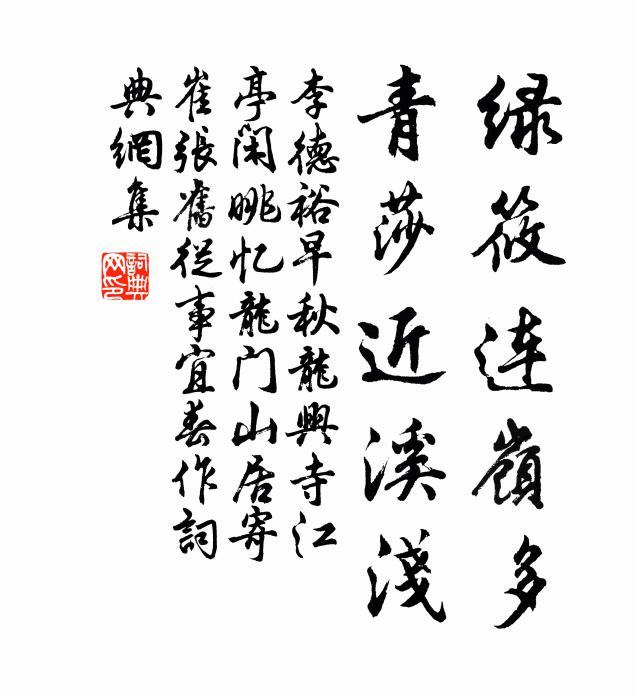 绿筱连嶺多
青莎近溪淺
李德裕早秋龍興寺江
亭閑眺忆龍门山居寄
崔張舊從事宜春作詞
典網集
詞典网印